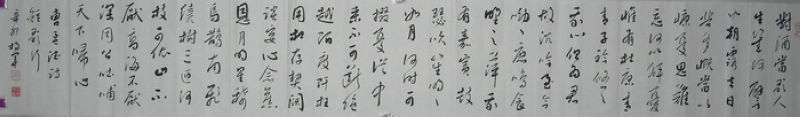 對酒當歌人
生幾何譬
如朝露去日
苦多慨當以
慷憂思難
忘何以解憂
唯有杜康青
青子衿悠悠
我心但為君
故沉吟至今
呦呦鹿鳴食
野之苹我
有嘉賓鼓
瑟吹笙明明
如月何時可
掇憂從中
來不可斷絕
越陌度阡枉
用相存契闊
談讌心念舊
恩月明星稀
烏鵲南飛
繞樹三匝何
枝可依山不
厭高海不厭
深周公吐哺
天下歸心
曹孟德詩
短歌行